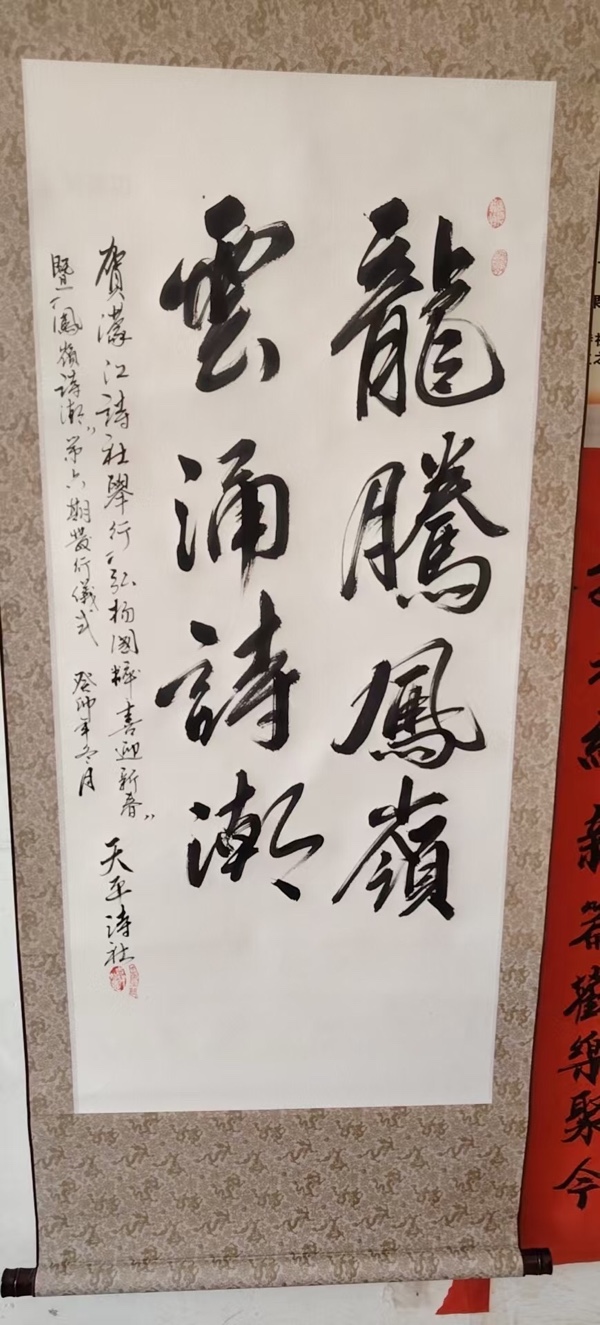 龍騰鳳嶺
雲涌詩潮
賀濛江詩社舉行“弘楊國粹喜迎新春”
暨“鳳嶺詩潮”第六期發行儀式 癸卯年冬月
天平诗社
新篇歡樂聚今